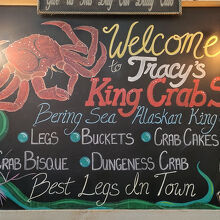 Give Us This Day Our Daily Crab
Welcome
to Tracy's
King Crab S
Bering Sea Alaskan King
Legs Buckets Crab Cakes
Crab Bisque Dungeness Crab
Best Legs In Town